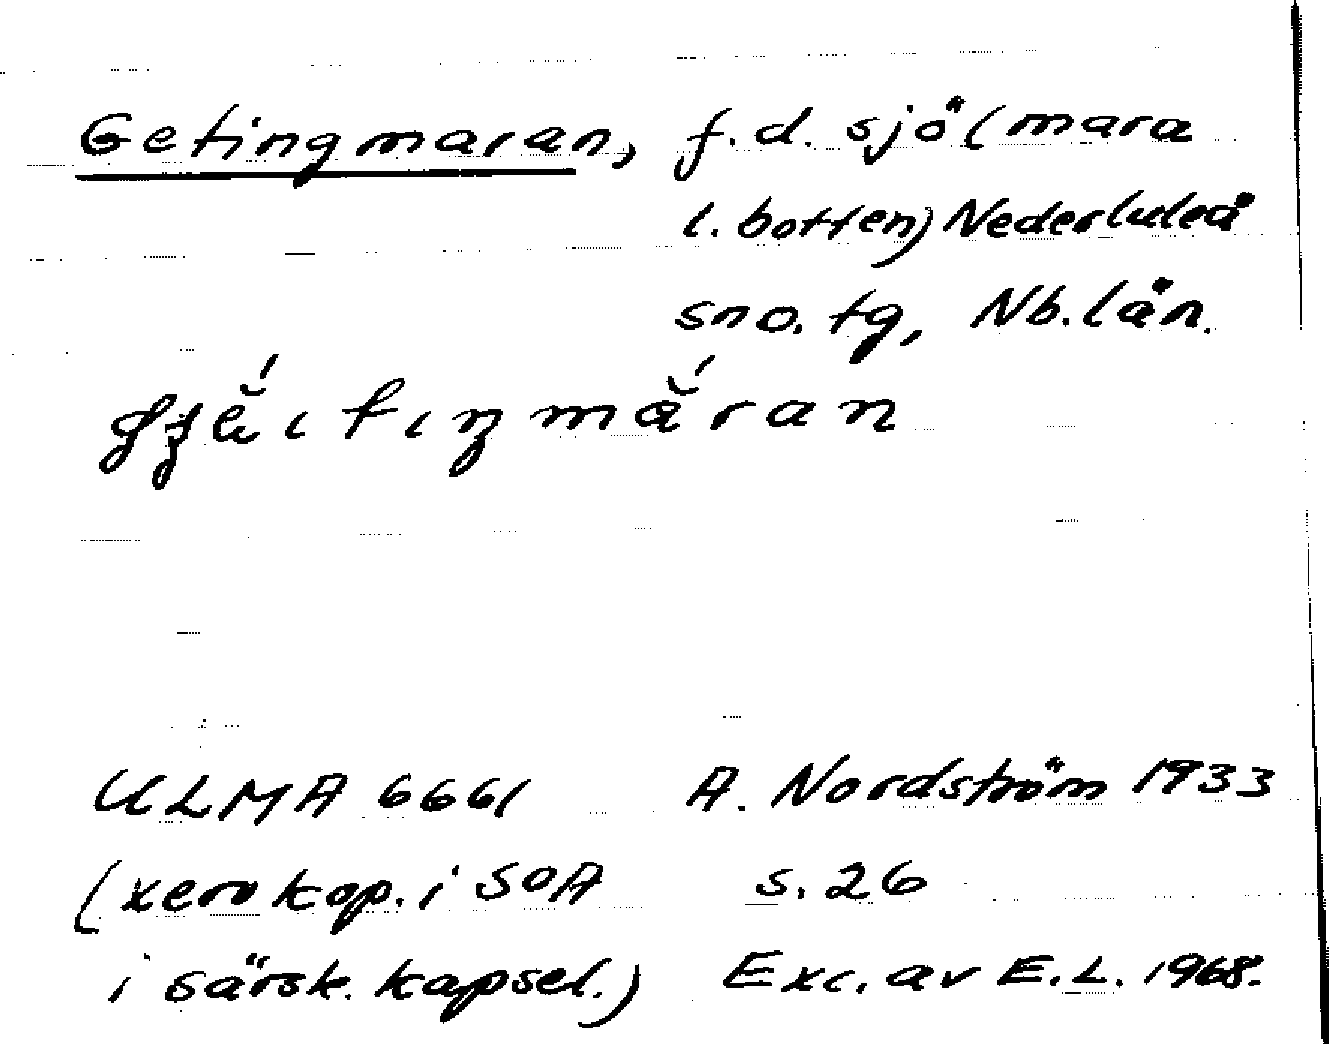 Getingmaran, f.d. sjö (mara
l. botten) Nederluleå
sno. tg, Nb. län.
ULMA 6661 A. Nordström 1933
(xerokop. i SOA s. 26
i särsk. kapsel.) Exc. av E.L. 1968.